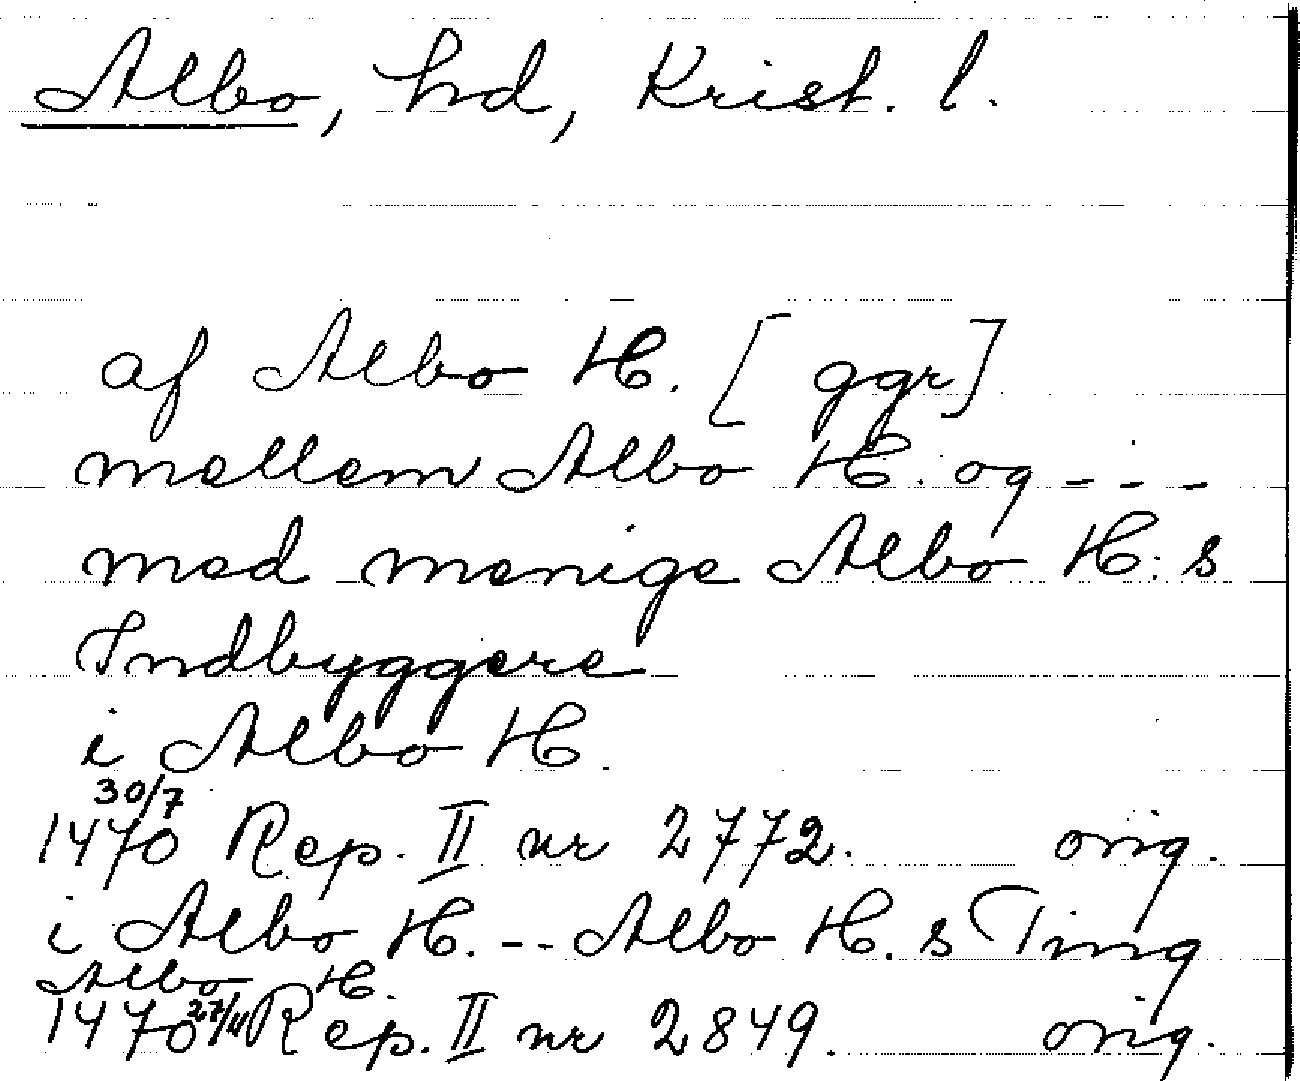 Albo, hd, Krist. l.
af Albo H. [ggr]
mellem Albo H. og - - -
med menige Albo H:s
Indbyggere
i Albo H.
30/7
1470 Rep. II nr 2772. orig.
i Albo H. -- Albo H.s Ting
Albo H.
1470 27/11 Rep. II nr 2849. orig.